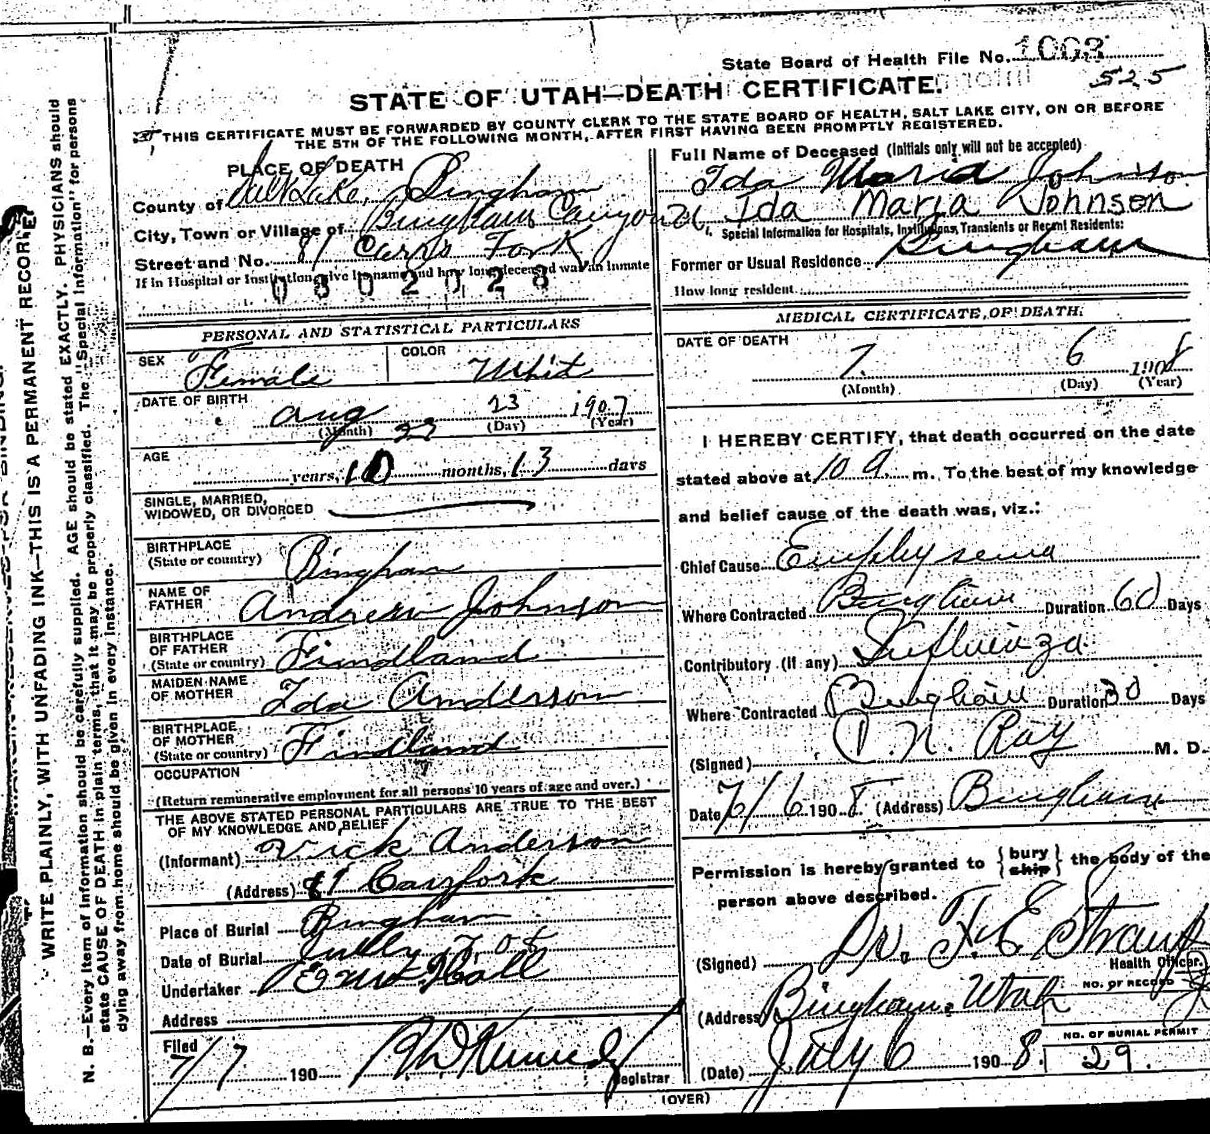 State Board of Health File No. 1003
525
STATE OF UTAH—DEATH CERTIFICATE.
THIS CERTIFICATE MUST BE FORWARDED BY COUNTY CLERK TO THE STATE BOARD OF HEALTH, SALT LAKE CITY, ON OR BEFORE
THE 5TH OF THE FOLLOWING MONTH, AFTER FIRST HAVING BEEN PROMPTLY REGISTERED.
PLACE OF DEATH
County of Salt Lake, Bingham
City, Town or Village of Bingham Canyon
Street and No. 81 Carrs Fork
If in Hospital or Institution, give its name and how long deceased was an inmate
0302028
Full Name of Deceased (Initials only will not be accepted)
Ida Maria Johnson
Ida Maria Johnson
Special Information for Hospitals, Institutions, Transients or Recent Residents:
Former or Usual Residence Bingham
How long resident
PERSONAL AND STATISTICAL PARTICULARS
SEX Female
COLOR Whit
DATE OF BIRTH Aug 23 1907
(Month) 22 (Day) (Year)
AGE years, 10 months, 13 days
SINGLE, MARRIED,
WIDOWED, OR DIVORCED
BIRTHPLACE
(State or country) Bingham
NAME OF
FATHER Andrew Johnson
BIRTHPLACE
OF FATHER
(State or country) Findland
MAIDEN NAME
OF MOTHER Ida Anderson
BIRTHPLACE
OF MOTHER
(State or country) Findland
OCCUPATION
(Return remunerative employment for all persons 10 years of age and over.)
THE ABOVE STATED PERSONAL PARTICULARS ARE TRUE TO THE BEST
OF MY KNOWLEDGE AND BELIEF
(Informant) Vick Anderson
(Address) 81 Carrfork
Place of Burial Bingham
Date of Burial Jully 7, 08
Undertaker Hall
Address
Filed
7/7 190
Registrar
MEDICAL CERTIFICATE OF DEATH.
DATE OF DEATH
7 6 1908
(Month) (Day) (Year)
I HEREBY CERTIFY, that death occurred on the date
stated above at 10 a m. To the best of my knowledge
and belief cause of the death was, viz.:
Chief Cause Emphysema
Where Contracted Bingham Duration 60 Days
Contributory (if any) Influenza
Where Contracted Bingham Duration 30 Days
(Signed) Ray M. D.
Date 7/6 1908 (Address) Bingham
Permission is hereby granted to {bury ship} the body of the
person above described.
(Signed) Dr. F. E. Straup
Health Officer.
(Address) Bingham, Utah
NO. OF RECORD
NO. OF BURIAL PERMIT
(Date) July 6 1908. 29.
(OVER)
WRITE PLAINLY, WITH UNFADING INK—THIS IS A PERMANENT RECORD.
N. B.—Every item of information should be carefully supplied. AGE should be stated EXACTLY. PHYSICIANS should
state CAUSE OF DEATH in plain terms, that it may be properly classified. The "Special Information" for persons
dying away from home should be given in every instance.